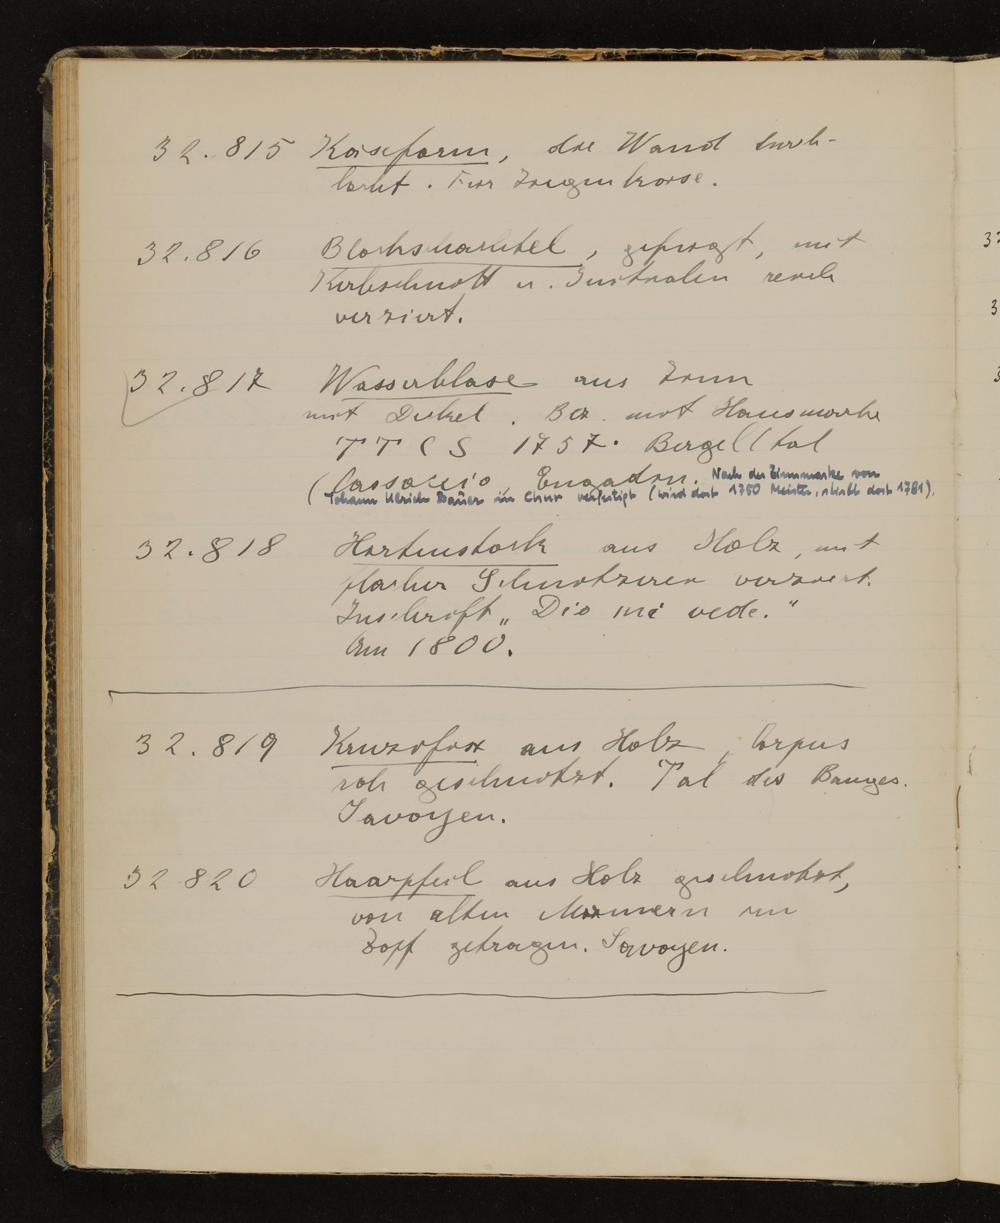 32.815 Käseform, die Wand durch-
locht. Für Ziegenkäse.
32.816 Blashschachtel, gefügt, mit
Kerbschnitt u. Initialen reich
verziert.
32.817 Wasserblase aus Zinn
mit Deckel. Bez. mit Hausmarke
T T C S 1757. Bergell (tal
(Cassaccio, Engadin. Nach der Zinnmarke von
Johann Ulrich Bauer in Chur verfertigt (wird dort 1750 Meister, stirbt dort 1781).
32.818 Hirtenstock aus Holz, mit
flacher Schnitzerei verziert.
Inschrift „Dio mi vede."
Um 1800.
32.819 Kruzifix aus Holz, Corpus
roh geschnitzt. Tal des Bauges.
Savoyen.
32 820 Haarpfeil aus Holz geschnitzt,
von alten Männern im
Zopf getragen. Savoyen.
32
3
3